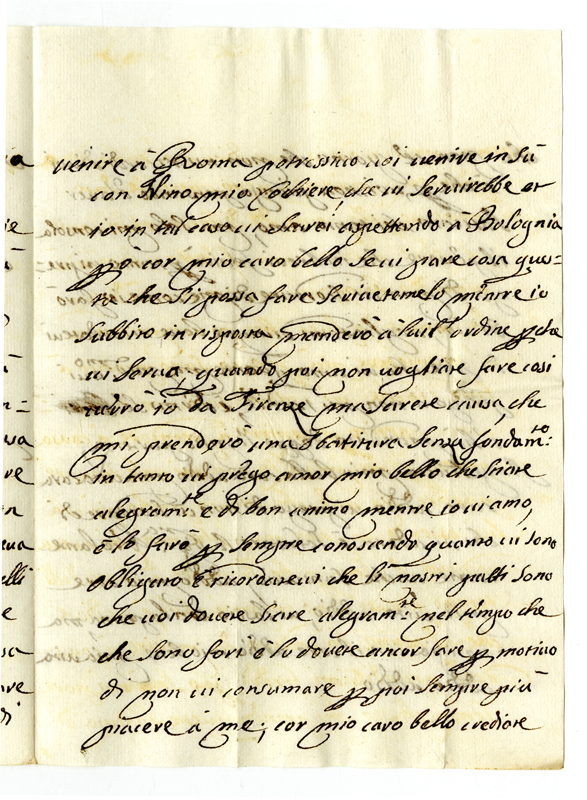 venire à Roma potressivo voi venire in sù
con Nino mio Cochiere, che vi servirebbe et
io in tal caso vi starei aspettando a Bolognia
però cor mio caro bello se vi pare cosa ques=
ta che si possa fare scrivetemelo mentre io
subbito in risposta manderò à lui l'ordine perche
vi serva, quando poi non vogliate fare cosi
verrò io da Firenze ma sarete causa, che
mi prenderò una sbatitura senza fondam:to
in tanto vi prego amor mio bello che stiate
alegram:te e di bon animo mentre io vi amo,
è lo farò per sempre conoscendo quanto vi sono
obligato è ricordatevi che li nostri patti sono
che voi dovete stare alegram:te nel tempo che
che sono fori è lo dovete ancor fare per motivo
di non vi consumare per poi sempre più
piacere à me; cor mio caro bello crediate